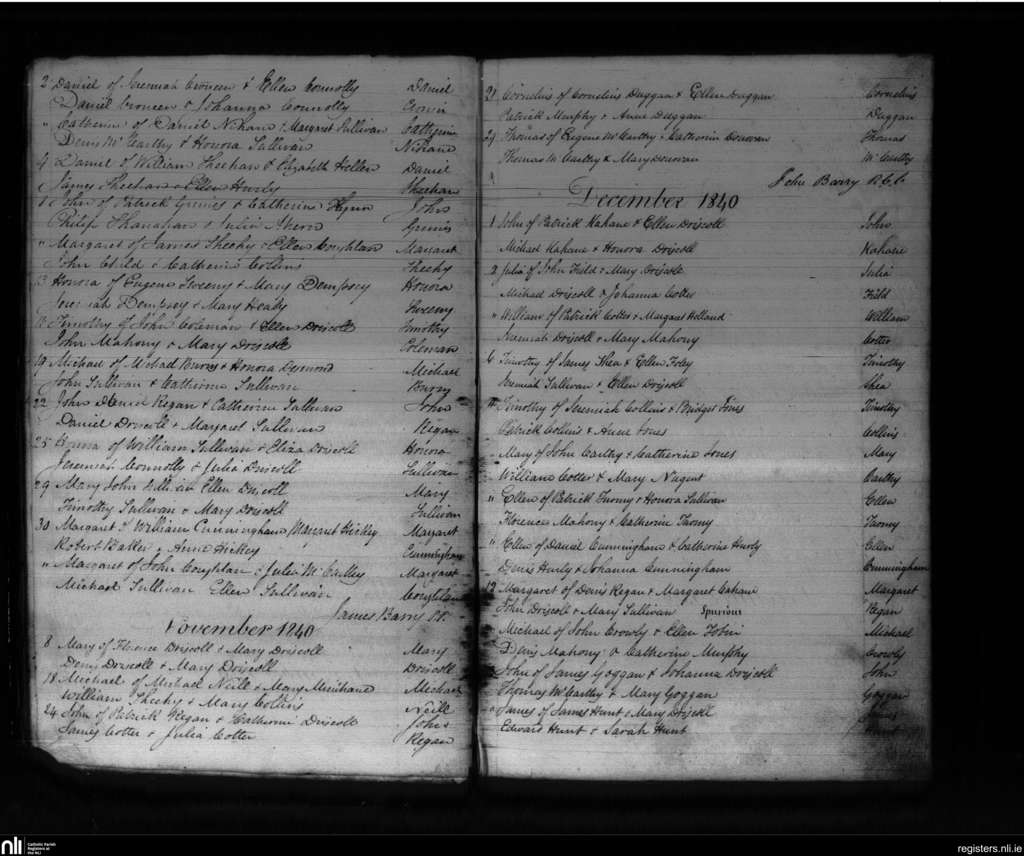 2 Daniel of Jeremiah Croneen & Ellen Connolly Daniel
Daniel Croneen & Johanna Connolly
" Catherine of Daniel & Margaret Sullivan
Denis McCarthy & Honora Sullivan
4 Daniel of William Sheehan & Elizabeth Hellen Daniel
James Sheehan & Ellen Hurly Sheehan
John of Patrick & Catherine John
Philip Shanahan & Julia Ahern
" Margaret of James Sheehy & Ellen Coughlan Margaret
John Child & Catherine Collins Sheehy
13 Honora of Eugene Sweeny & Mary Dempsey Honora
Jeremiah Dempsey & Mary Healy Sweeny
Timothy of John Coleman & Ellen Driscoll Timothy
John Mahony & Mary Driscoll Coleman
19 Michael of Michael & Honora Michael
John Sullivan & Catherine Sullivan
22 John Daniel Regan & Catherine Sullivan John
Daniel Driscoll & Margaret Sullivan Regan
25 Honora of William Sullivan & Eliza Driscoll Honora
Jeremiah Connolly & Julia Driscoll Sullivan
29 Mary John Sullivan Ellen Driscoll Mary
Timothy Sullivan & Mary Driscoll Sullivan
30 Margaret of William Cunningham & Margaret Hickey Margaret
Robert Baker & Anne Hickey Cunningham
" Margaret of John Coughlan & Julia McCarthy Margaret
Michael Sullivan Ellen Sullivan Coughlan
James Barry P.P.
November 1840
8 Mary of Florence Driscoll & Mary Driscoll Mary
Denis Driscoll & Mary Driscoll Driscoll
18 Michael of Michael Neill & Mary Michael
William Sheehy & Mary Collins Neill
24 John of Patrick Regan & Catherine Driscoll John
James Cotter & Julia Cotter Regan
Cornelius of Cornelius Duggan & Ellen Duggan Cornelius
Patrick Murphy & Anne Duggan Duggan
29 Thomas of Eugene McCarthy & Catherin Donovan Thomas
Thomas McCarthy & Mary Donovan McCarthy
John Barry R.C.C.
December 1840
1 John of Patrick Kahane & Ellen Driscoll John
Michael Kahane & Honora Driscoll Kahane
2 Julia of John Field & Mary Driscoll Julia
Michael Driscoll & Johanna Cotter Field
" William of Patrick Cotter & Margaret Holland William
Jeremiah Driscoll & Mary Mahony Cotter
6 Timothy of James Shea & Ellen Foley Timothy
Jeremiah Sullivan & Ellen Driscoll Shea
Timothy of Jeremiah Collins & Bridget Jones Timothy
Patrick Collins & Anne Jones Collins
Mary of John Carthy & Catherine Jones Mary
William Cotter & Mary Nugent Carthy
" Ellen of Patrick Twomy & Honora Sullivan Ellen
Florence Mahony & Catherin Twomy Twomy
" Ellen of Daniel Cunningham & Catherine Hurly Ellen
Denis Hurly & Johanna Cunningham Cunningham
Margaret of Denis Regan & Margaret Cahane Margaret
John Driscoll & Mary Sullivan Spurious Regan
Michael of John Crowly & Ellen Tobin Michael
Denis Mahony & Catherine Murphy Crowly
John of James Goggan & Johanna Driscoll John
Thomas McCarthy & Mary Goggan Goggan
James of James Hunt & Mary Driscoll
Edward Hunt & Sarah Hunt Hunt
nli
Catholic Parish
Registers at
the NLI
registers.nli.ie